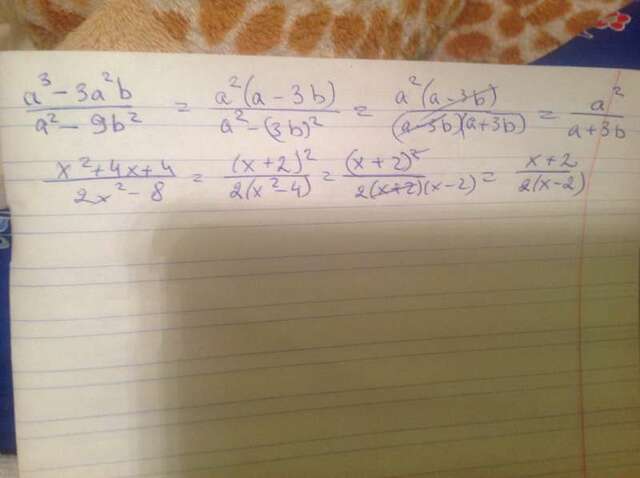 (a³ - 3a²b)/(a² - 9b²) = a²(a - 3b)/(a² - (3b)²) = a²(a - 3b)/((a - 3b)(a + 3b)) = a²/(a + 3b)
(x² + 4x + 4)/(2x² - 8) = (x + 2)²/(2(x² - 4)) = (x + 2)²/(2(x + 2)(x - 2)) = (x + 2)/(2(x - 2))